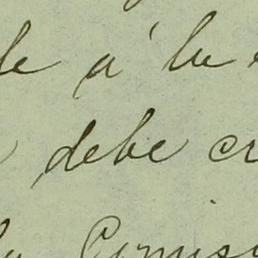 le á la
debe cr
la Comis